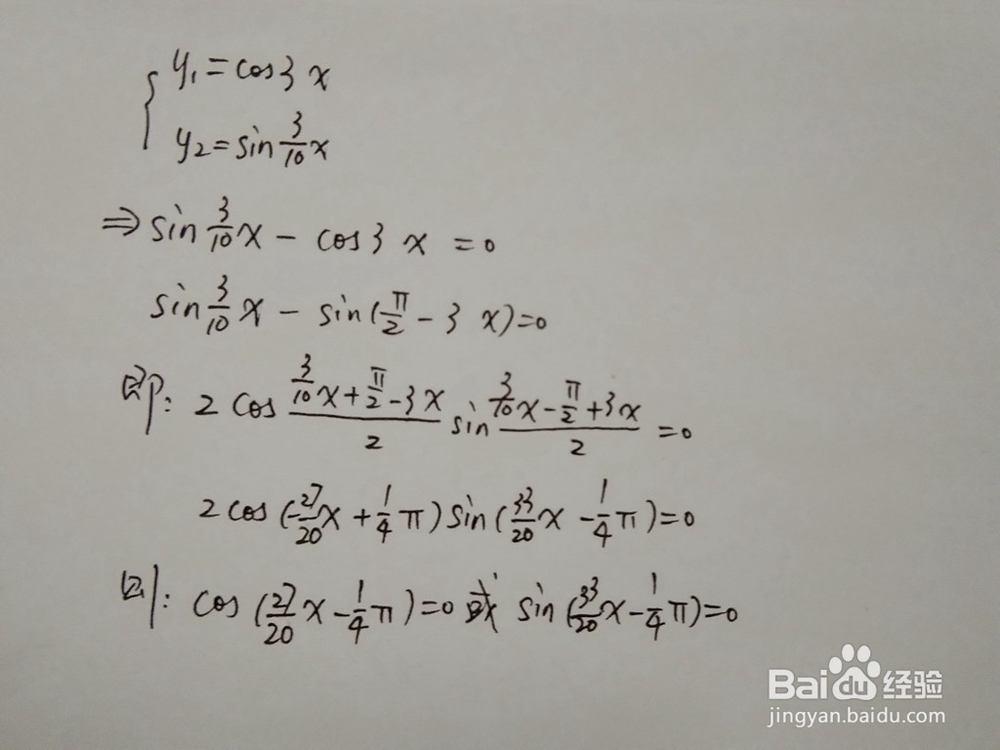 { y₁=cos3x
y₂=sin3/10x
⇒sin3/10x-cos3x=0
sin3/10x-sin(π/2-3x)=0
即: 2cos(3/10x+π/2-3x)/2 sin(3/10x-π/2+3x)/2=0
2cos(-27/20x+1/4π)sin(33/20x-1/4π)=0
则: cos(27/20x-1/4π)=0或sin(33/20x-1/4π)=0
Baidu经验
jingyan.baidu.com